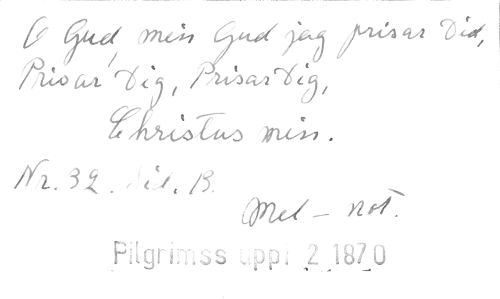 O Gud, min Gud jag prisar Did,
Prisar Dig, Prisar Dig,
Christus min.
Nr. 32. Sid. 13.
Mel – not.
Pilgrimss uppl 2 1870